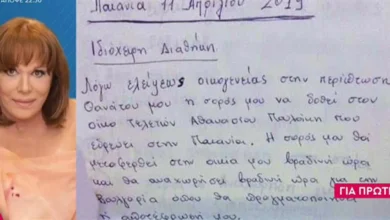 ΑΠΟΨΕ 22:50
Παιανία 11 Απριλίου 2019
Ιδιόχειρη Διαθήκη.
Λόγω ελλείψεως οικογενείας στην περίπτωση
Θανάτου μου η σορός μου να δοθεί στον
οίκο τελετών Αθανασίου Παλαίκη που
εδρεύει στην Παιανία. Η σορός μου θα
μεταφερθεί στην οικία μου βραδινή ώρα
και θα αναχωρήσει βραδινή ώρα για την
Βουλγαρία όπου θα πραγματοποιηθεί
η αποτέφρωσή μου.
ΓΙΑ ΠΡΩΤΗ